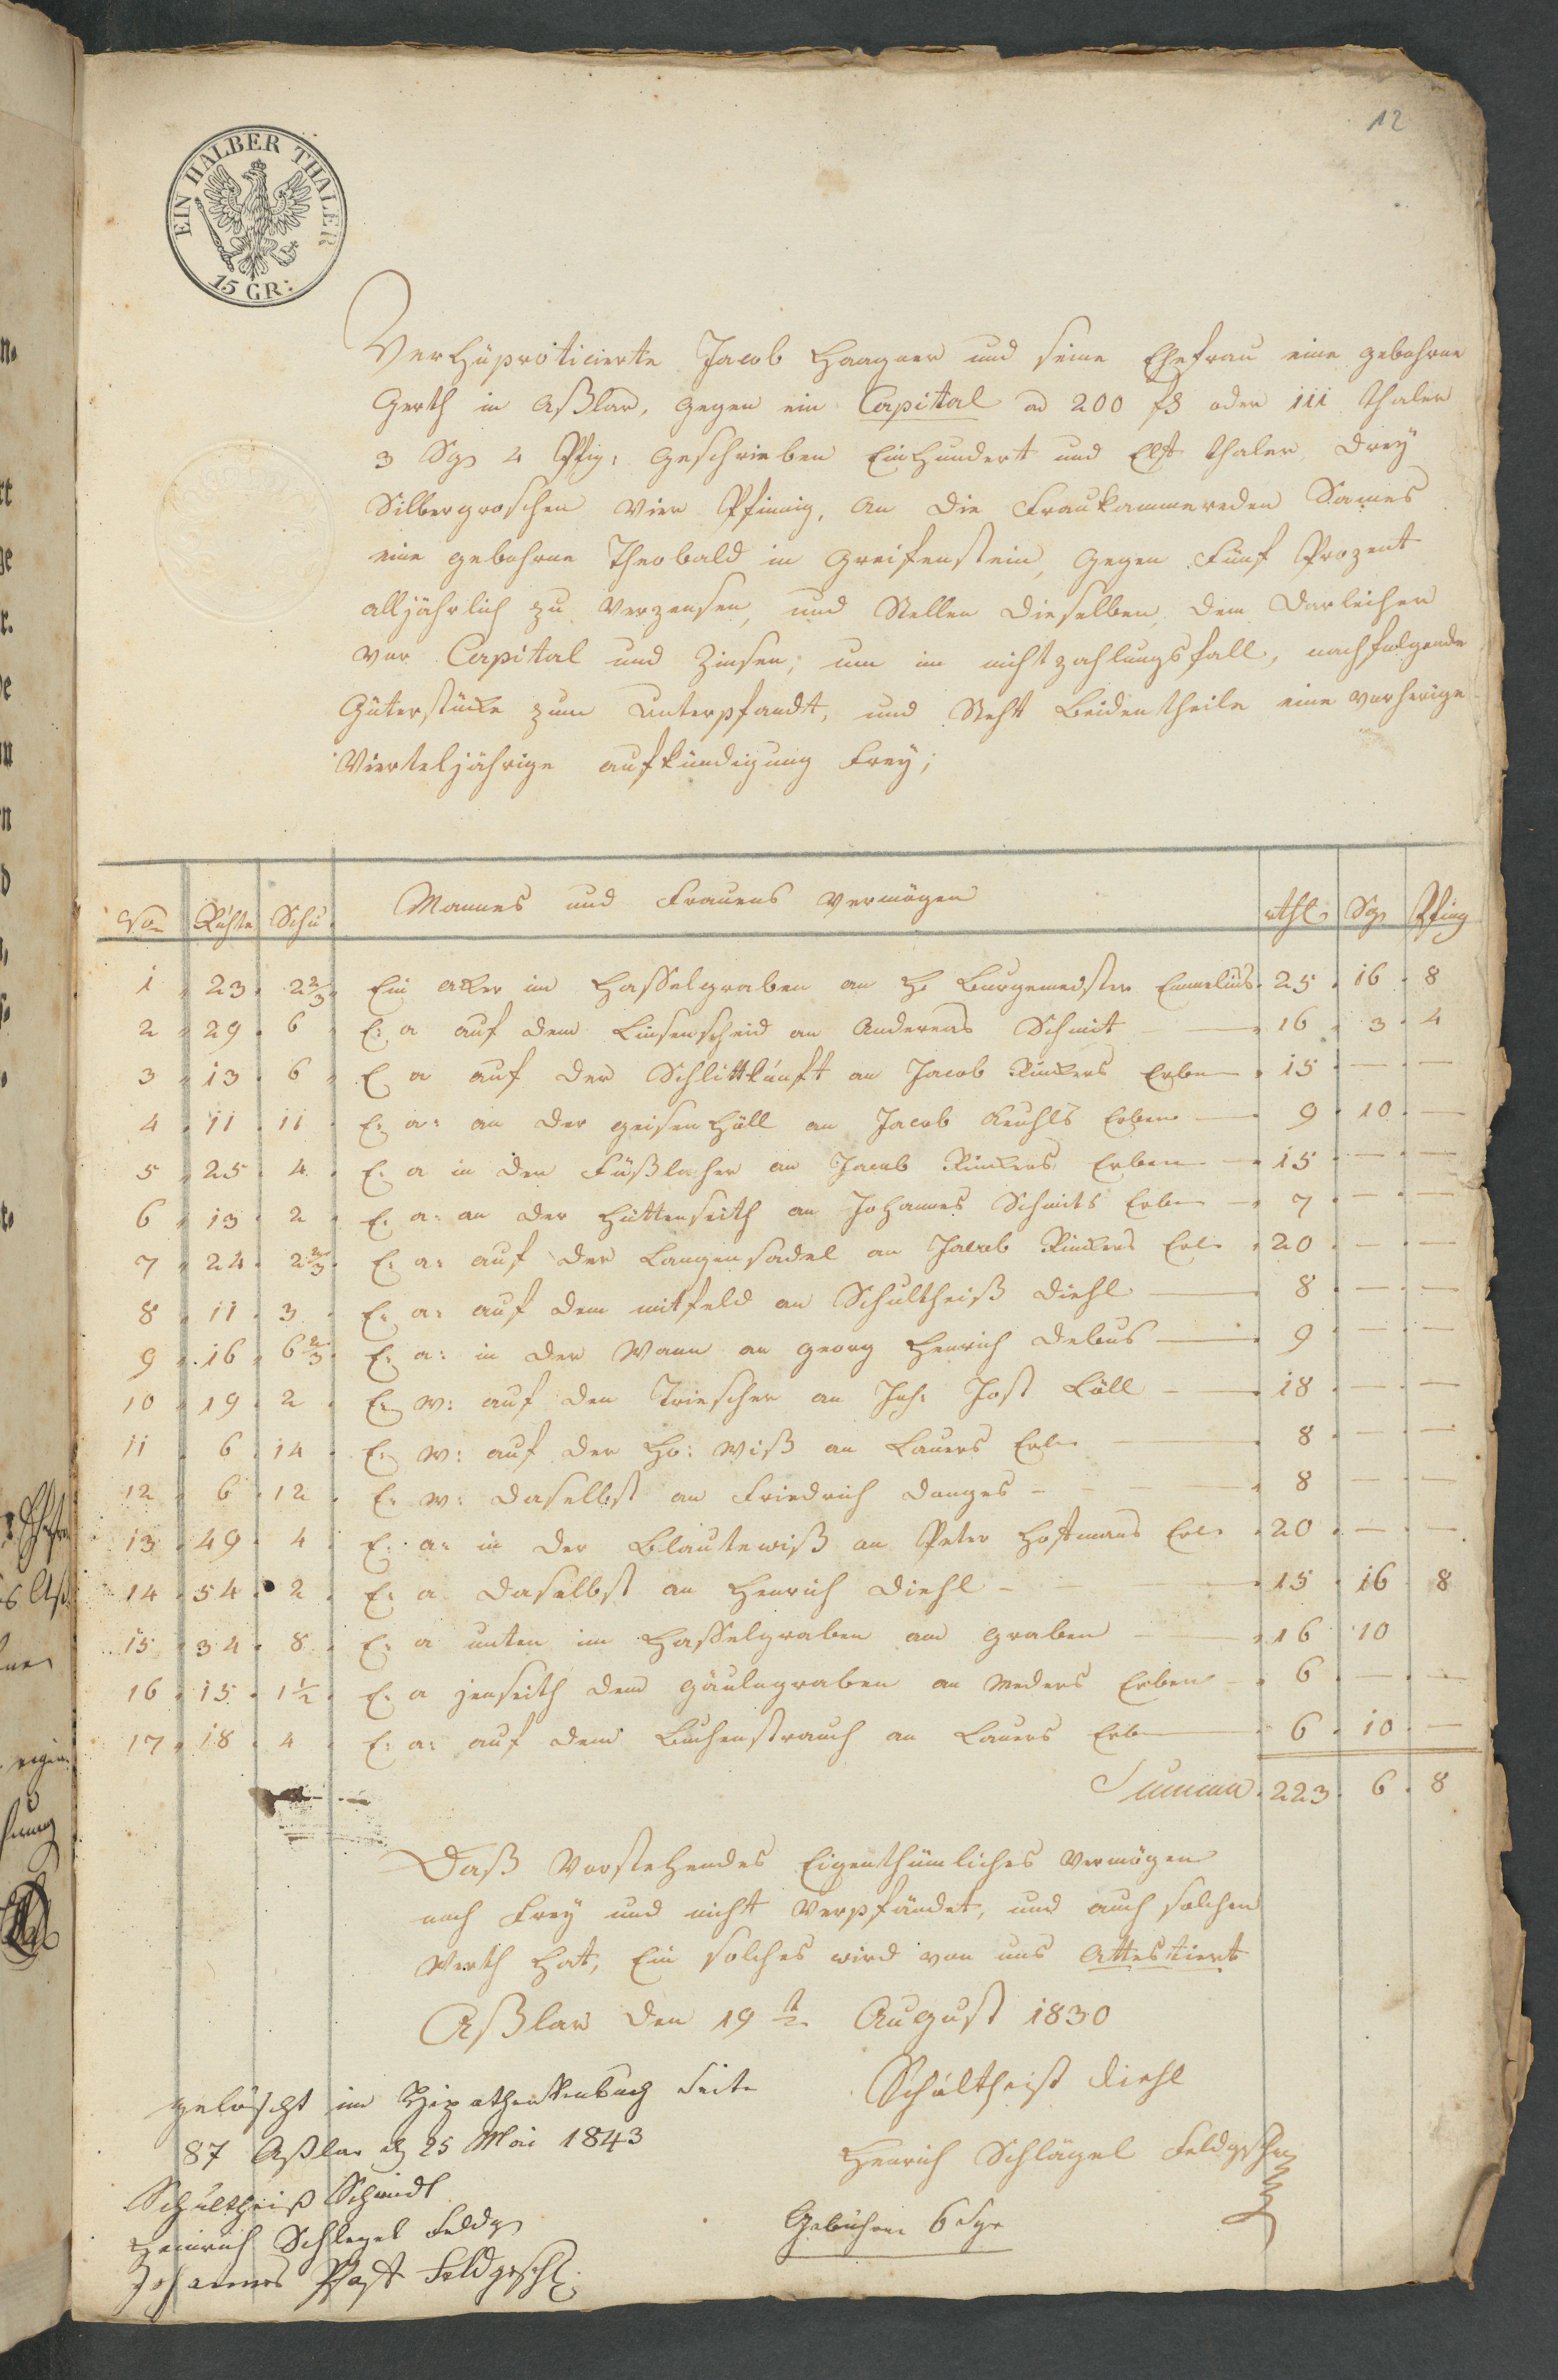 12
EIN HALBER THALER
15 GR:
Verhüpoticierte Jacob Haagner und seine Ehefrau eine gebohrne
Gerth in Aßlar, gegen ein Capital ad 200 fl oder 111 thaler
3 Sgr 4 Pfig: geschrieben Einhundert und Elft thaler drey
Silbergroschen Vier Pfinnig, an die Frau Sames
eine gebohrne Theobald in Greifenstein, gegen Fünf Prozent
alljährlich zu Verzensen, und Stellen dieselben, dem Darleiher
vor Capital und Zinsen, um im nichtzahlungsfall, nachfolgende
Güterstücke zum Unterpfandt, und Steht Beidentheile eine vorherige
Vierteljährige aufkündigung Frey;
No Ruhte Schu Mannes und Frauens Vermögen rthl Sgr Pfing
1 23 2 2/3 Ein acker im Hasselgraben an H. Burgemeister Emmelius 25 16 8
2 29 6 E: a auf dem Linsenscheid an Anderas Schmit 16 3 4
3 13 6 E a auf der an Jacob Rinkers Erben 15 — —
4 11 11 E: a: an der geisenHöll an Jacob Erben 9 10 —
5 25 4 E: a in den an Jacob Rinkers Erben 15 — —
6 13 2 E. a: an der Hüttenseith an Johannes Schmits Erben 7 — —
7 24 2 2/3 E: a: auf der Langensadel an Jacob Rinkers Erben 20 — —
8 11 3 E: a: auf dem mitfeld an Schultheiß Diehl 8 — —
9 16 6 2/3 E: a: in der Wann an georg Henrich Debus 9 — —
10 19 2 E: W: auf den Trieschen an Joh: Jost Löll 18 — —
11 6 14 E: W: auf der Ho: Wiß an Lauers Erben 8 — —
12 6 12 E: W: daselbst an Friedrich Danges 8 — —
13 49 4 E: a: in der Blautewiß an Peter Hofmans Erben 20 — —
14 54 2 E: a daselbst an Henrich Diehl 15 16 8
15 34 8 E: a unten im Hasselgraben am graben 16 10
16 15 1 1/2 E: a jenseith dem gäulsgraben an Meders Erben 6 — —
17 18 4 E: a: auf dem Buchenstrauch an Lauers Erben 6 10 —
Summa 223 6 8
Daß Vorstehendes Eigenthümliches Vermögen
noch Frey und nicht Verpfändet, und auch solchen
Werth Hat, Ein solches wird von uns Attestiert
Aßlar den 19t August 1830
Schultheist Diehl
Henrich Schlägel Feldgschr
Gebühren 6 Sgr
gelöscht im Hipothenkenbuch Seite
87 Aßlar d 25 Mai 1843
Schultheiß Schmidt
Heinrich Schlegel Feldg
Johannes Feldgesch.